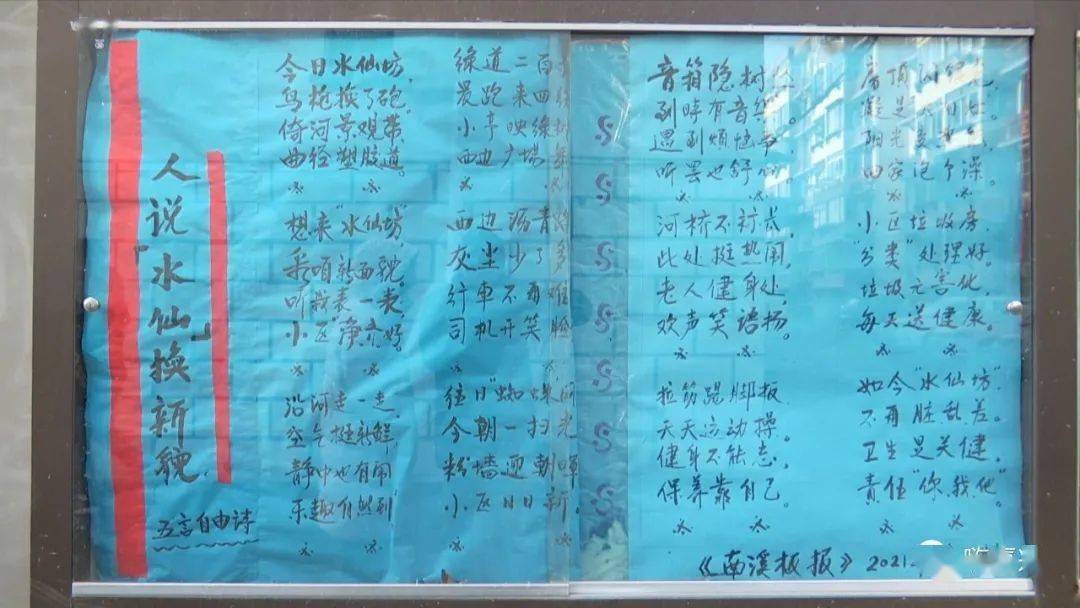 人说「水仙」换新貌
五言自由诗
今日水仙坊,
鸟枪换了砲。
倚河景观带"
曲径塑胶道。
想来"水仙坊"
采咱新面貌。
听我表一表
小区净亦好。
沿河走一走
空气挺新鲜
静中也有闹
乐趣自然到
绿道二百
晨跑来回
小亭映绿
西边广场
西边沥青
灰尘少了多
行车不再难
司机开笑脸
往日"蜘蛛网
今朝一扫光
粉墙迎朝晖
小区日日新。
音箱隐树丛
到时有音
遇到烦恼事
听罢也舒心。
河桥不对式
此处挺热闹。
老人健身处,
欢声笑语扬。
拉筋踢脚板
天天运动操。
健身不能忘。
保养靠自己。
房顶
凝是
阳光
回家泡个澡。
小区垃圾房,
"分类"处理好。
垃圾无害化,
每天送健康。
如今"水仙坊"
不再脏乱差。
卫生是关健,
责任"你、我、他"
《南溪板报》2021.